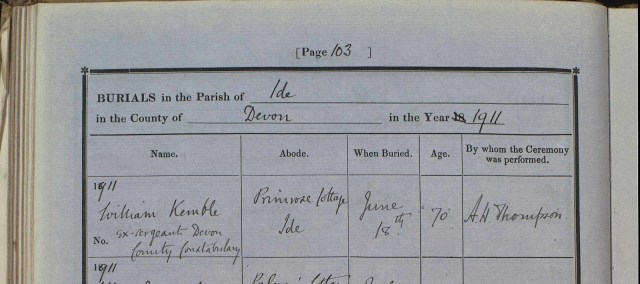 [Page 103 ]
BURIALS in the Parish of Ide
in the County of Devon in the Year 18 1911
Name. Abode. When Buried. Age. By whom the Ceremony was performed.
1911
William Kemble
No. ex-sergeant Devon
County Constabulary
Primrose Cottage
Ide
June
18th
70
A H Thompson
1911